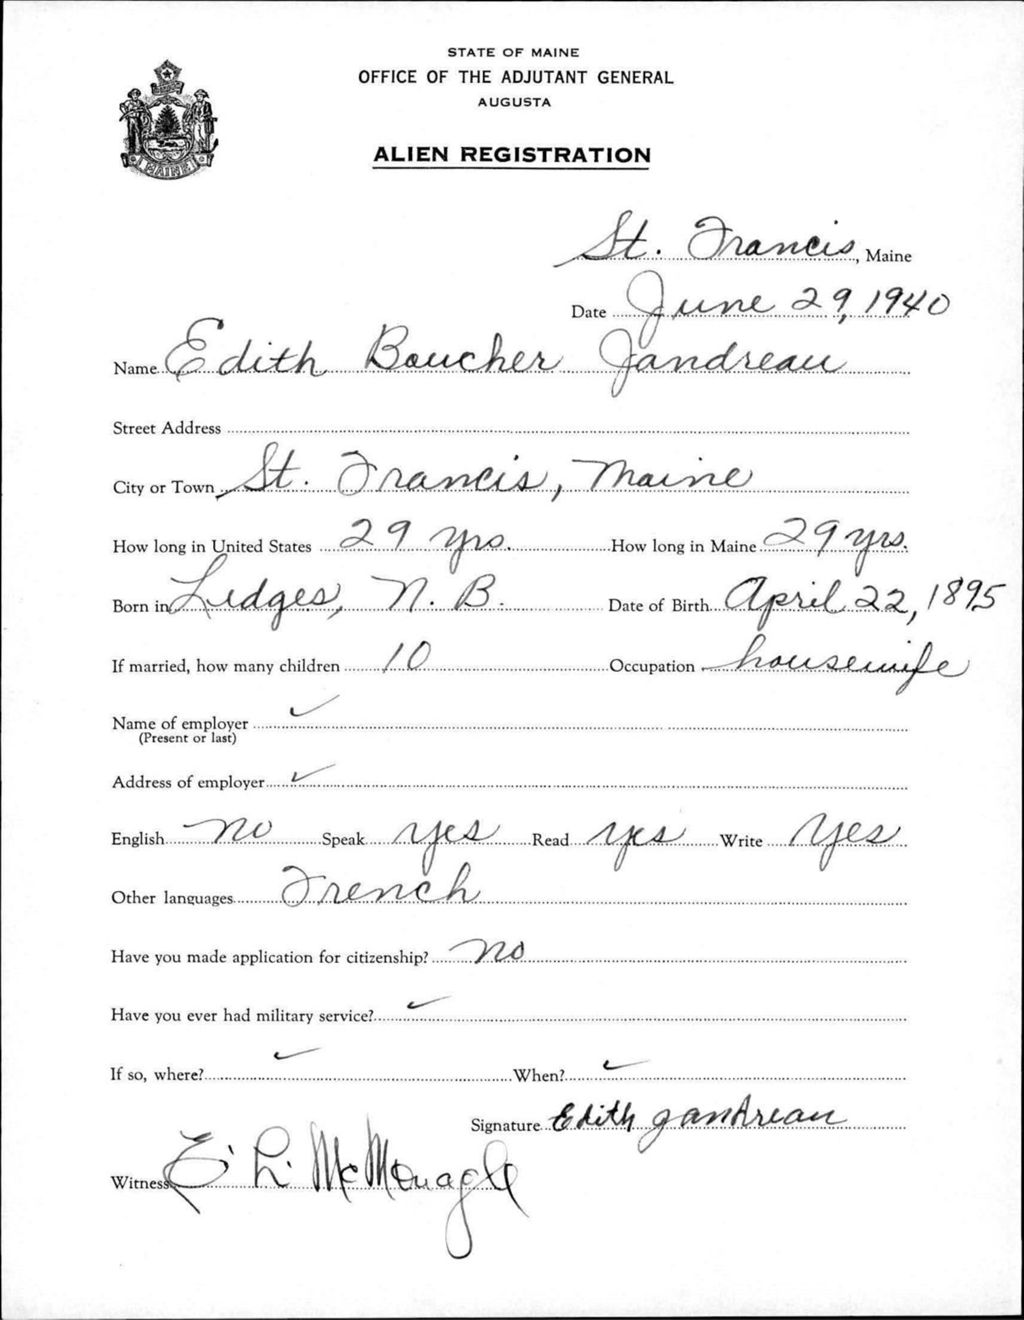 STATE OF MAINE
OFFICE OF THE ADJUTANT GENERAL
AUGUSTA
ALIEN REGISTRATION
MAINE
St. Francis, Maine
Date June 29, 1940
Name Edith Boucher Jandreau
Street Address
City or Town St. Francis, Maine
How long in United States 29 yrs. How long in Maine 29 yrs.
Born in Ledges, N. B. Date of Birth April 22, 1895
If married, how many children 10 Occupation housewife
Name of employer ✓
(Present or last)
Address of employer ✓
English no Speak yes Read yes Write yes
Other languages French
Have you made application for citizenship? no
Have you ever had military service? ✓
If so, where? ✓ When? ✓
Signature Edith Jandreau
Witness E. L. McMonagle